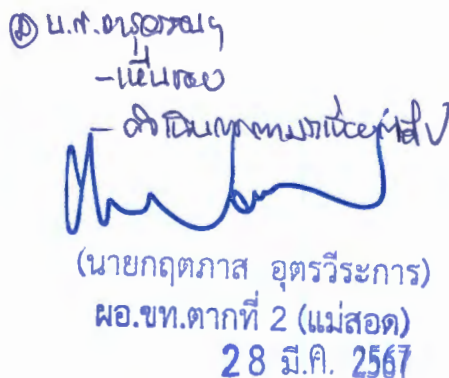 ② น.ส.จารุวรรณฯ
- เห็นชอบ
- ดำเนินการตามระเบียบต่อไป
(นายกฤตภาส อุตรวีระการ)
ผอ.ขท.ตากที่ 2 (แม่สอด)
28 มี.ค. 2567